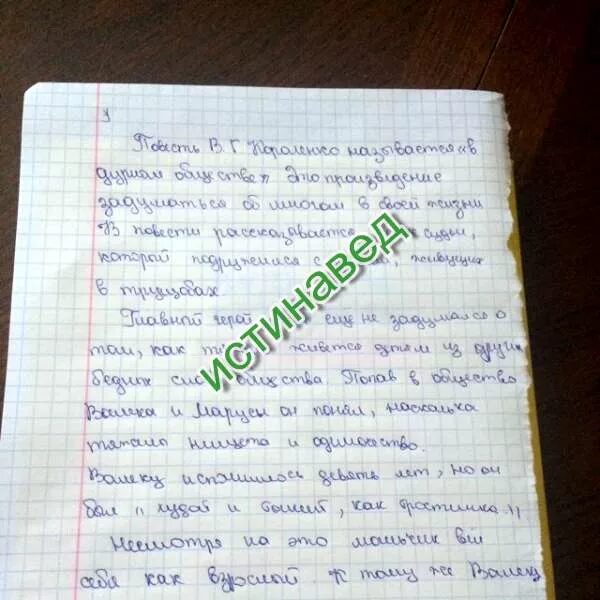 1
Повесть В. Г. Короленко называется «в
дурном обществе» Это произведение
задуматься об многом в своей жизни
В повести рассказывается судьи,
который подружился с живущих
в трущобах
Главной герой ещё не задумался о
том, как живётся детям из других
бедных общества. Попав в общество
Валека и Маруси он понял, насколька
тяжело нищета и одиночество.
Валеку исполнилось девять лет, но он
был "худой и тонкий, как тростинка."
Несмотря на это мальчик вёл
себя как взрослый К тому же Валеку
истинавед